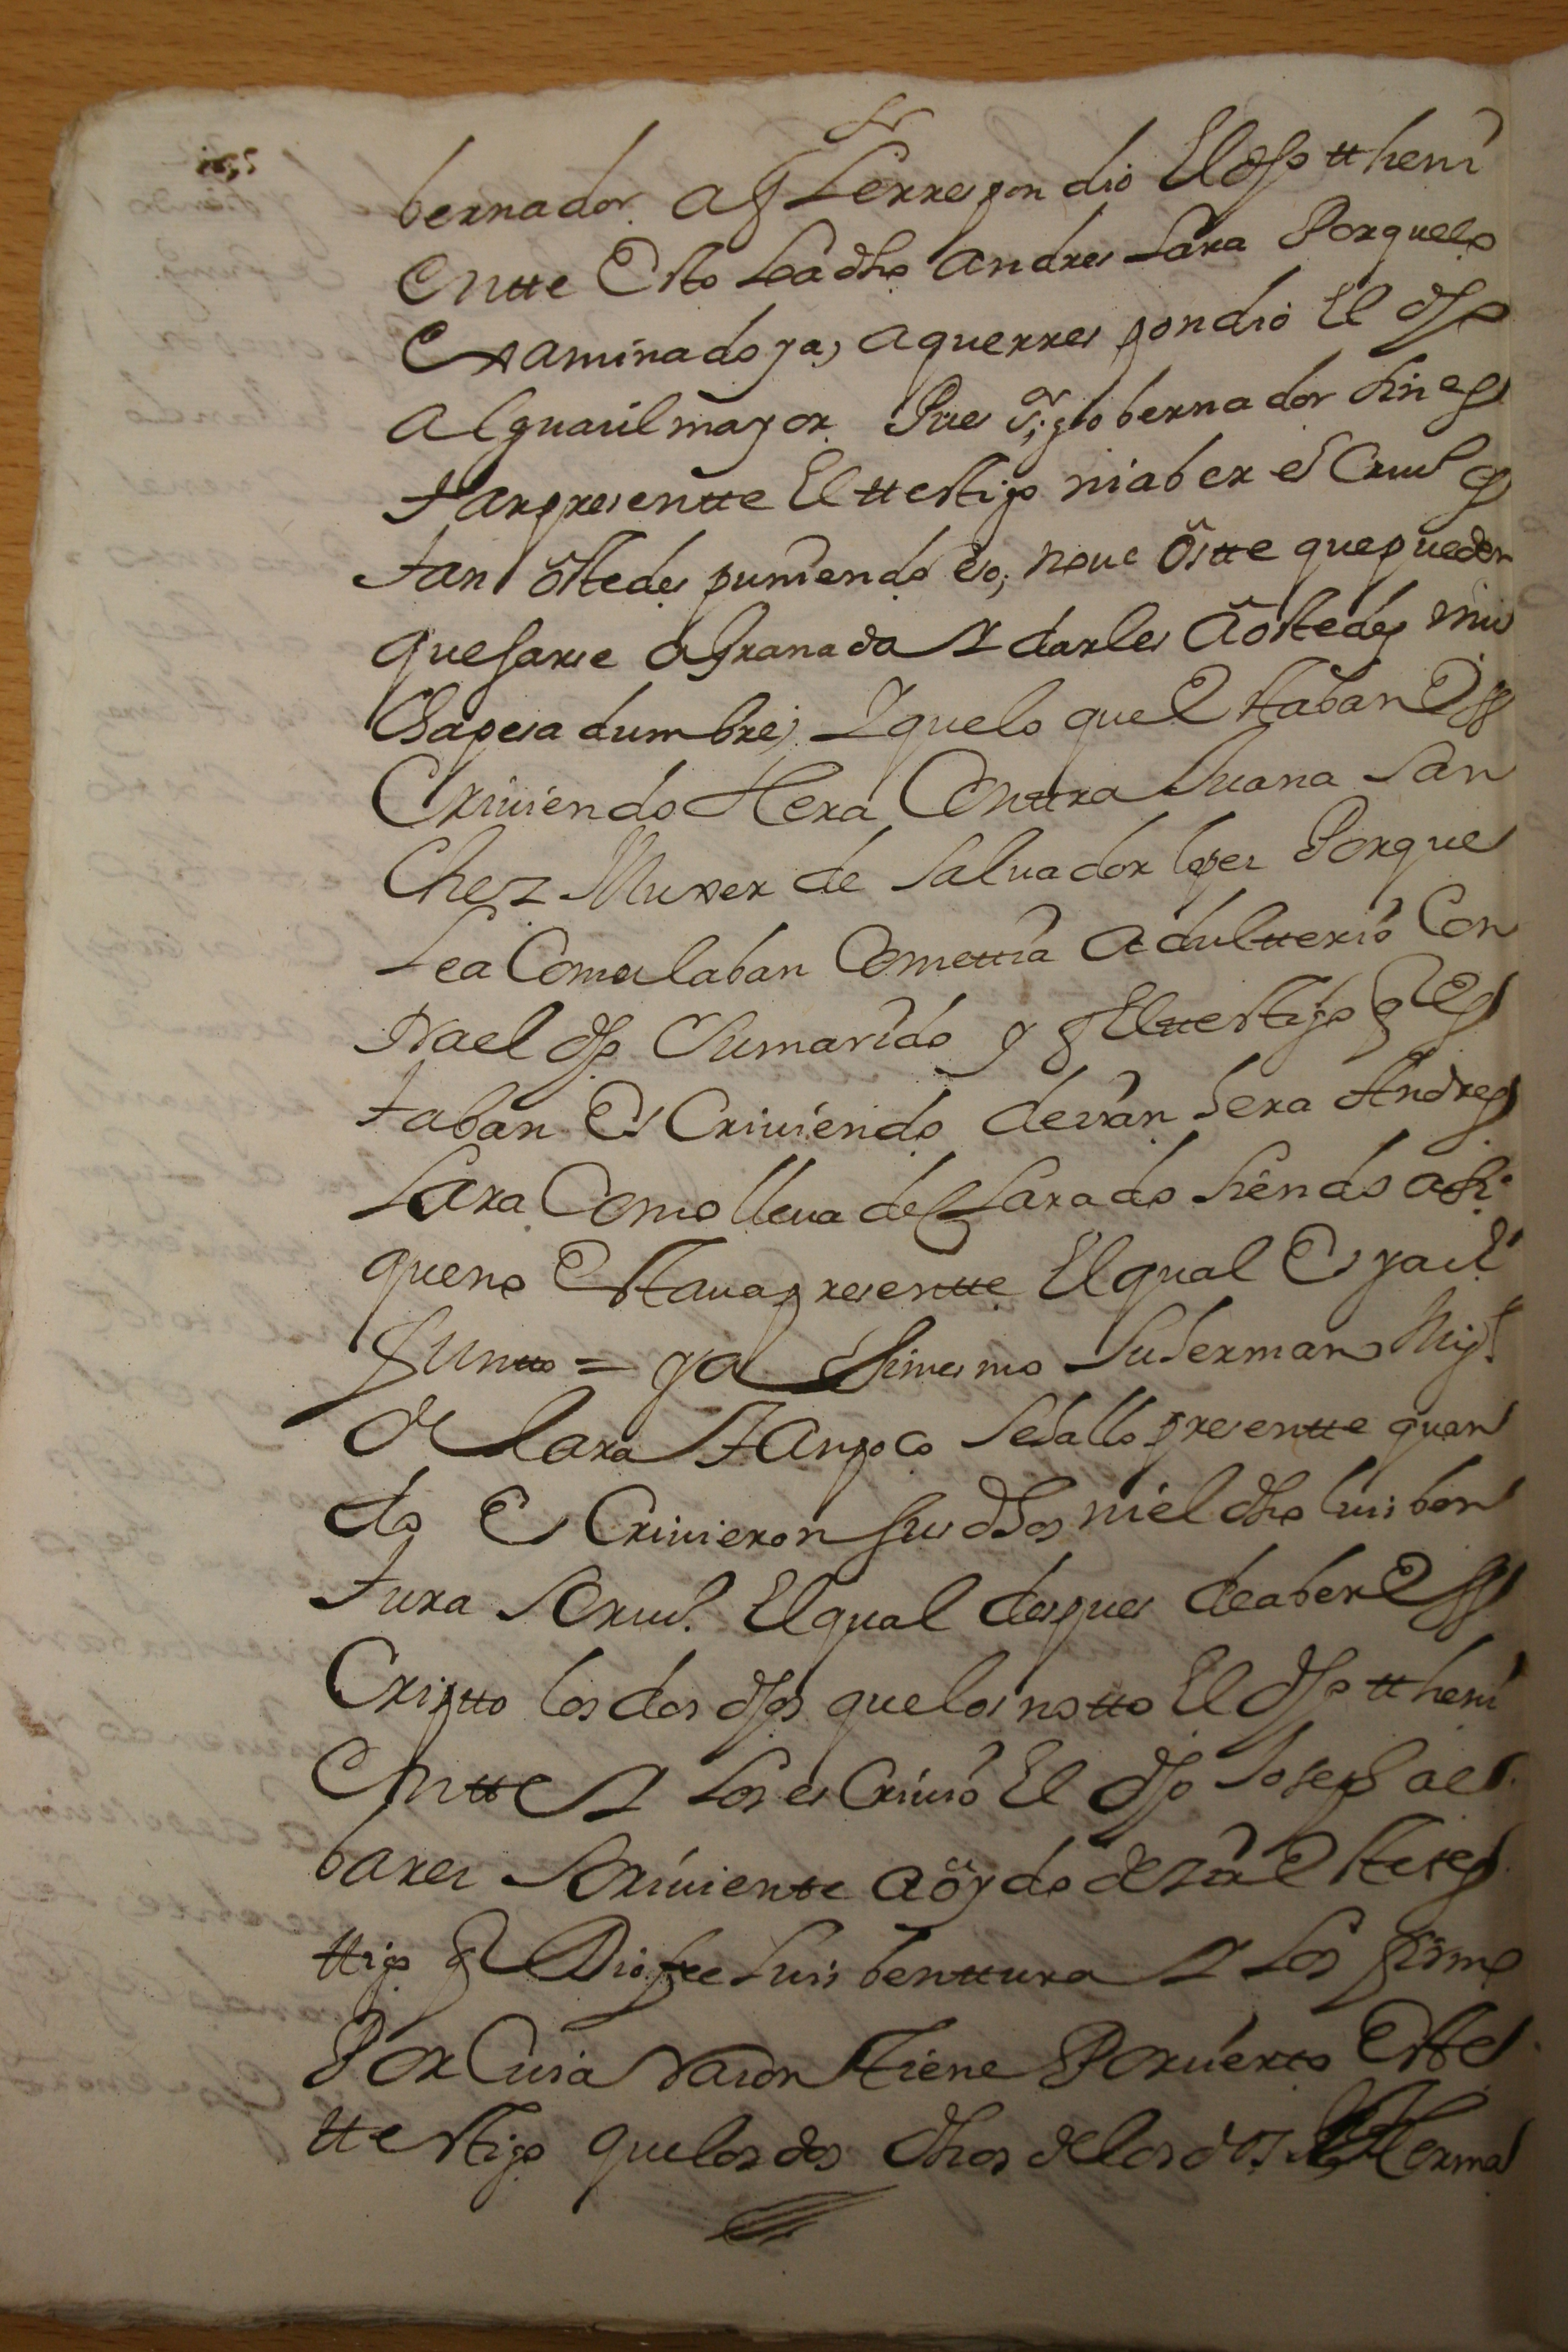 bernador. a q Lerrespondio El dho ttheni
entte Esto Lo a dho Andres Lara Porque lo
Examinado ya, a que rrespondio El dho
Alguacil mayor. Pues sor gobernador sin es
tar presentte El ttestigo ni aber escriuº es
tan ostedes puniendo eso, no ue ostte que pueden
quejarse a Granada Y darles a ostedes mu
cha pesadumbre, Y que lo que Estaban Es
criuiendo Hera Conttra Juana San
chez Muxer de Saluador lopez Porque
Le a Comulaban Comettia Adultterio Con
ttra el dho Su marido y q El ttestigo q Es
taban Escriuiendo decian hera Andres
Lara Como lleua declarado siendo asi
que no Estaua presentte El qual Es ya di
funtto = y a si mesmo Su hermano Migl
de Lara Tanpoco se hallo presentte quan
do Escriuieron sus dhos ni el dho luis ben
tura Scriuº. El qual despues de aber Es
criptto los dos dhos que los notto El dho ttheni
entte Y Los escriuio El dho Joseph al
barez Scriuientte a oydo dezir Este tes
ttigo q Dio fee Luis benttura Y Los firmo
Por Cuia Racon tiene Por cierto Este
ttestigo que los dos dhos de los dos Herma